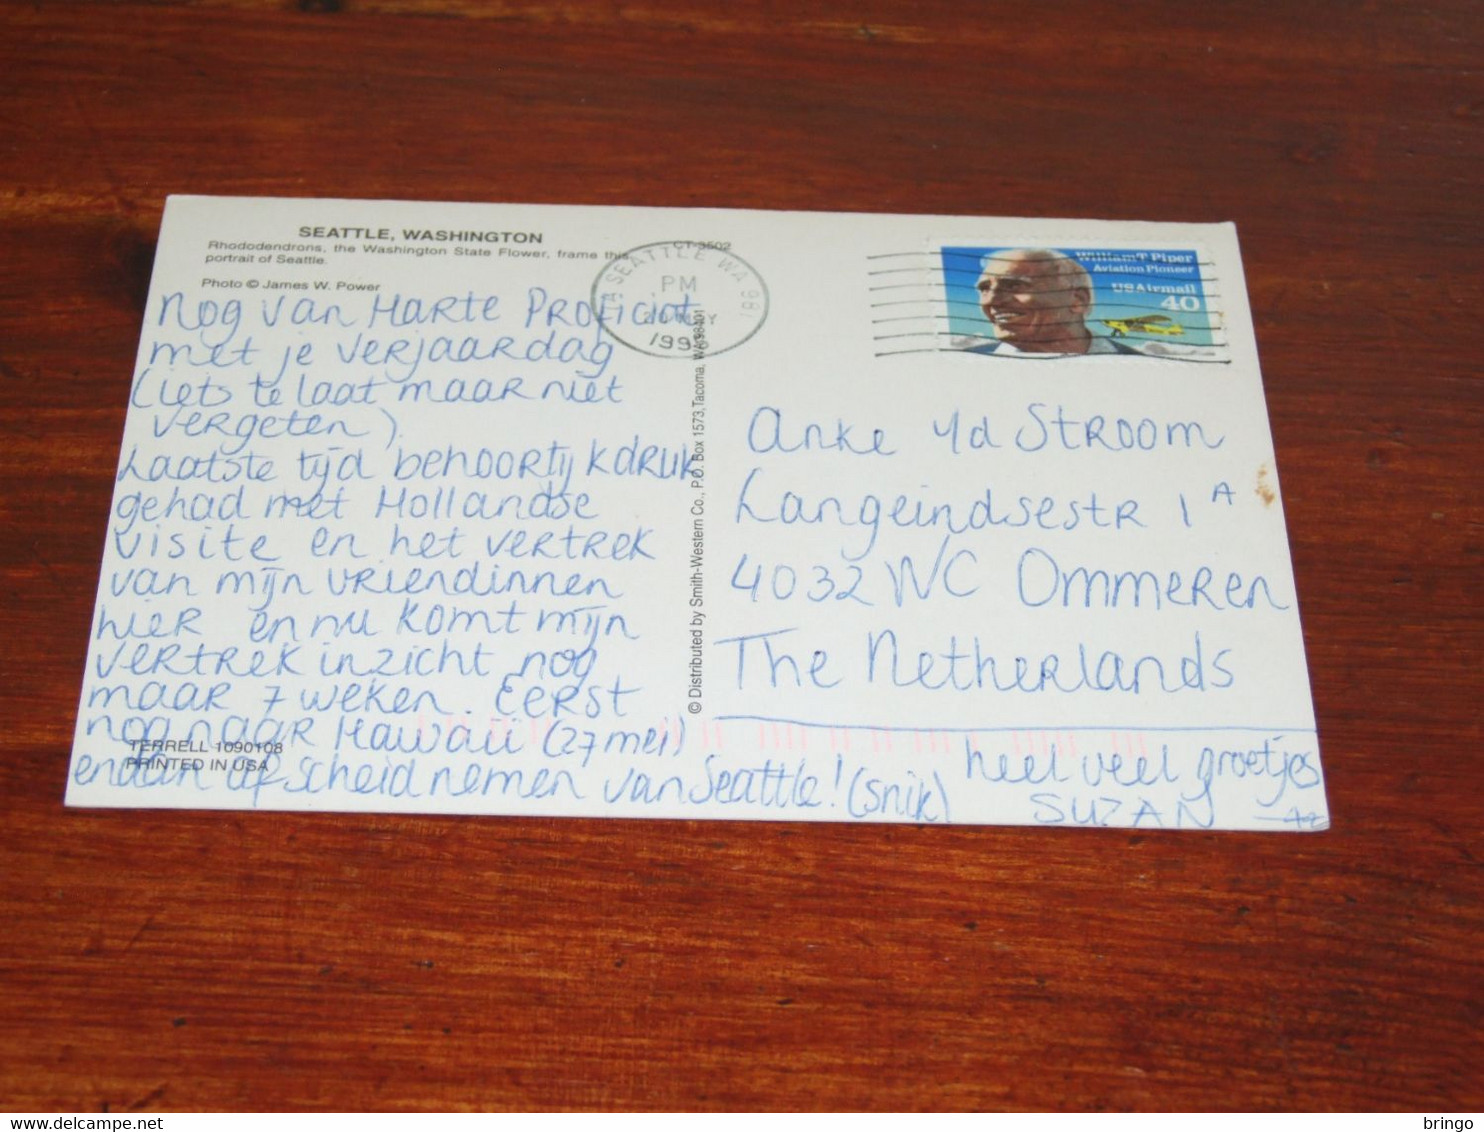 SEATTLE, WASHINGTON
Rhododendrons, the Washington State Flower, frame this
portrait of Seattle.
Photo © James W. Power
CT-3502
Nog van HARTE PROFICIAT
met je verjaardag
(iets te laat maar niet
vergeten).
Laatste tijd behoorlijk druk
gehad met Hollandse
visite en het vertrek
van mijn vriendinnen
hier en nu komt mijn
vertrek inzicht nog
maar 7 weken. Eerst
nog naar Hawaii (27 mei)
en dan afscheid nemen van Seattle! (snik)
TERRELL 1090108
PRINTED IN USA
© Distributed by Smith-Western Co., P.O. Box 1573, Tacoma, WA 98401
SEATTLE WA 981
PM
20 MAY
William T Piper
Aviation Pioneer
USAirmail
40
Anke v/d Stroom
Langeindsestr 1A
4032 WC Ommeren
The Netherlands
heel veel groetjes
SUZAN